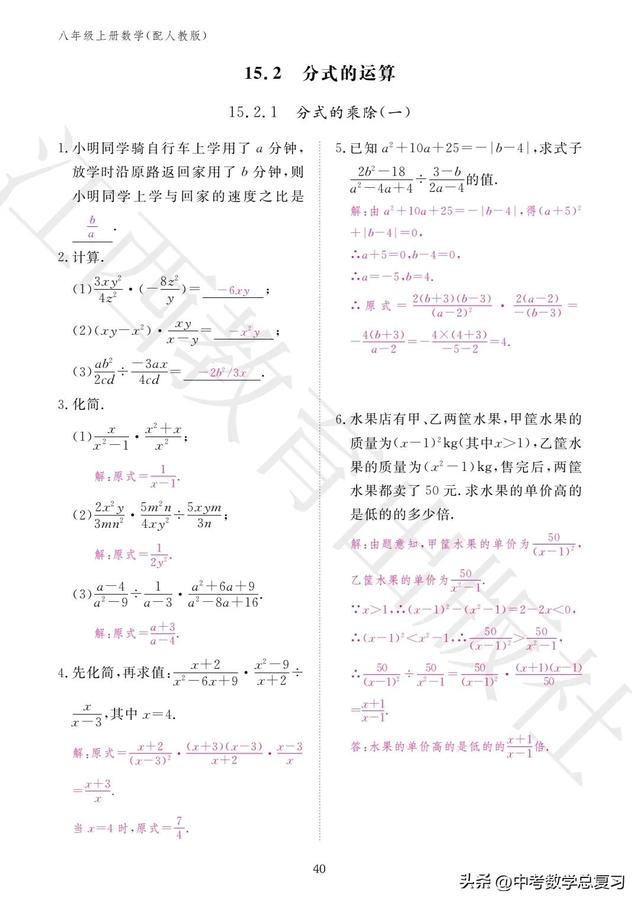 八年级上册数学(配人教版)
15.2 分式的运算
15.2.1 分式的乘除(一)
1.小明同学骑自行车上学用了 a 分钟,
放学时沿原路返回家用了 b 分钟,则
小明同学上学与回家的速度之比是
b/a .
2.计算.
(1) 3xy²/4z² · (-8z²/y) = -6xy ;
(2)(xy-x²) · xy/(x-y) = -x²y ;
(3) ab²/2cd ÷ -3ax/4cd = -2b²/3x .
3.化简.
(1) x/(x²-1) · (x²+x)/x² ;
解:原式= 1/(x-1).
(2) 2x²y/3mn² · 5m²n/4xy² ÷ 5xym/3n ;
解:原式= 1/2y².
(3) (a-4)/(a²-9) ÷ 1/(a-3) · (a²+6a+9)/(a²-8a+16).
解:原式= (a+3)/(a-4).
4.先化简,再求值: (x+2)/(x²-6x+9) · (x²-9)/(x+2) ÷
x/(x-3),其中 x=4.
解:原式= (x+2)/(x-3)² · (x+3)(x-3)/(x+2) · (x-3)/x
= (x+3)/x.
当 x=4 时,原式= 7/4.
5.已知 a²+10a+25=-|b-4|,求式子
(2b²-18)/(a²-4a+4) ÷ (3-b)/(2a-4) 的值.
解:由 a²+10a+25=-|b-4|,得(a+5)²
+|b-4|=0,
∴a+5=0,b-4=0,
∴a=-5,b=4.
∴原式= 2(b+3)(b-3)/(a-2)² · 2(a-2)/-(b-3) =
-4(b+3)/(a-2) = -4×(4+3)/(-5-2) =4.
6.水果店有甲、乙两筐水果,甲筐水果的
质量为(x-1)²kg(其中x>1),乙筐水
果的质量为(x²-1)kg,售完后,两筐
水果都卖了 50 元.求水果的单价高的
是低的的多少倍.
解:由题意知,甲筐水果的单价为 50/(x-1)²,
乙筐水果的单价为 50/(x²-1).
∵x>1,∴(x-1)²-(x²-1)=2-2x<0,
∴(x-1)²<x²-1,∴ 50/(x-1)² > 50/(x²-1),
∴ 50/(x-1)² ÷ 50/(x²-1) = 50/(x-1)² · (x+1)(x-1)/50
= (x+1)/(x-1).
答:水果的单价高的是低的的 (x+1)/(x-1) 倍.
江西教育出版社
40
头条 @中考数学总复习